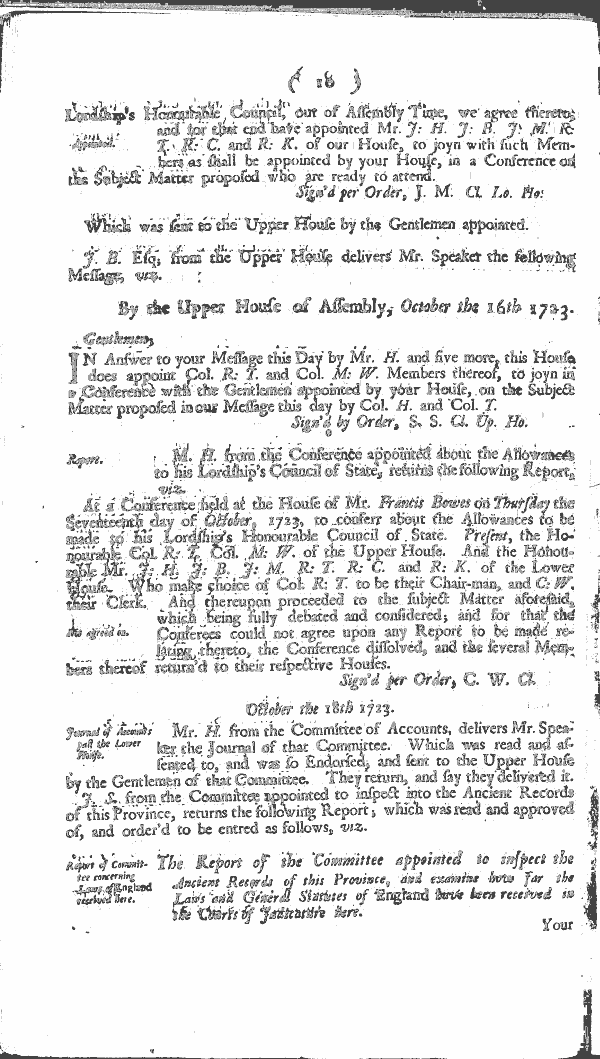 ( 18 )
Lordship's Honourable Council, out of Assembly Time, we agree thereto;
and for that end have appointed Mr. J: H. J: B. J: M. R:
Appointed. T. R: C. and R: K. of our House, to joyn with such Mem-
bers as shall be appointed by your House, in a Conference on
the Subject Matter proposed who are ready to attend.
Sign'd per Order, J. M. Cl. Lo. Ho:
Which was sent to the Upper House by the Gentlemen appointed.
J. B. Esq; from the Upper House delivers Mr. Speaker the following
Message, viz.
By the Upper House of Assembly, October the 16th 1723.
Gentlemen,
IN Answer to your Message this Day by Mr. H. and five more, this House
does appoint Col. R: T. and Col. M: W. Members thereof, to joyn in
a Conference with the Gentlemen appointed by your House, on the Subject
Matter proposed in our Message this day by Col. H. and Col. T.
Sign'd by Order, S. S. Cl. Up. Ho.
Report. M. H. from the Conference appointed about the Allowances
to his Lordship's Council of State, returns the following Report,
viz.
At a Conference held at the House of Mr. Francis Bowes on Thursday the
Seventeenth day of October, 1723, to conferr about the Allowances to be
made to his Lordship's Honourable Council of State. Present, the Ho-
nourable Col. R: T. Col. M: W. of the Upper House. And the Honou-
rable Mr. J: H. J: B. J: M. R: T. R: C. and R: K. of the Lower
House. Who make choice of Col. R: T. to be their Chair-man, and C: W.
their Clerk. And thereupon proceeded to the subject Matter aforesaid,
which being fully debated and considered; and for that the
Not agreed on. Conferees could not agree upon any Report to be made re-
lating thereto, the Conference dissolved, and the several Mem-
bers thereof return'd to their respective Houses.
Sign'd per Order, C. W. Cl.
October the 18th 1723.
Journal of Accounts Mr. H. from the Committee of Accounts, delivers Mr. Spea-
past the Lower ker the Journal of that Committee. Which was read and as-
House. sented to, and was so Endorsed, and sent to the Upper House
by the Gentlemen of that Committee. They return, and say they delivered it.
J. S. from the Committee appointed to inspect into the Ancient Records
of this Province, returns the following Report; which was read and approved
of, and order'd to be entred as follows, viz.
Report of Commit- The Report of the Committee appointed to inspect the
tee concerning Ancient Records of this Province, and examine how far the
Laws of England Laws and General Statutes of England have been received in
received here. the Courts of Judicature here.
Your